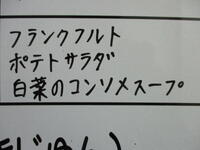 フランクフルト
ポテトサラダ
白菜のコンソメスープ